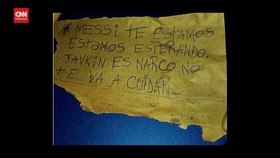 CNN
Indonesia
* MESSI. TE ESTAMOS
ESTAMOS ESPERANDO.
JAVKIN ES NARCO NO
TE VA A CUIDAR...